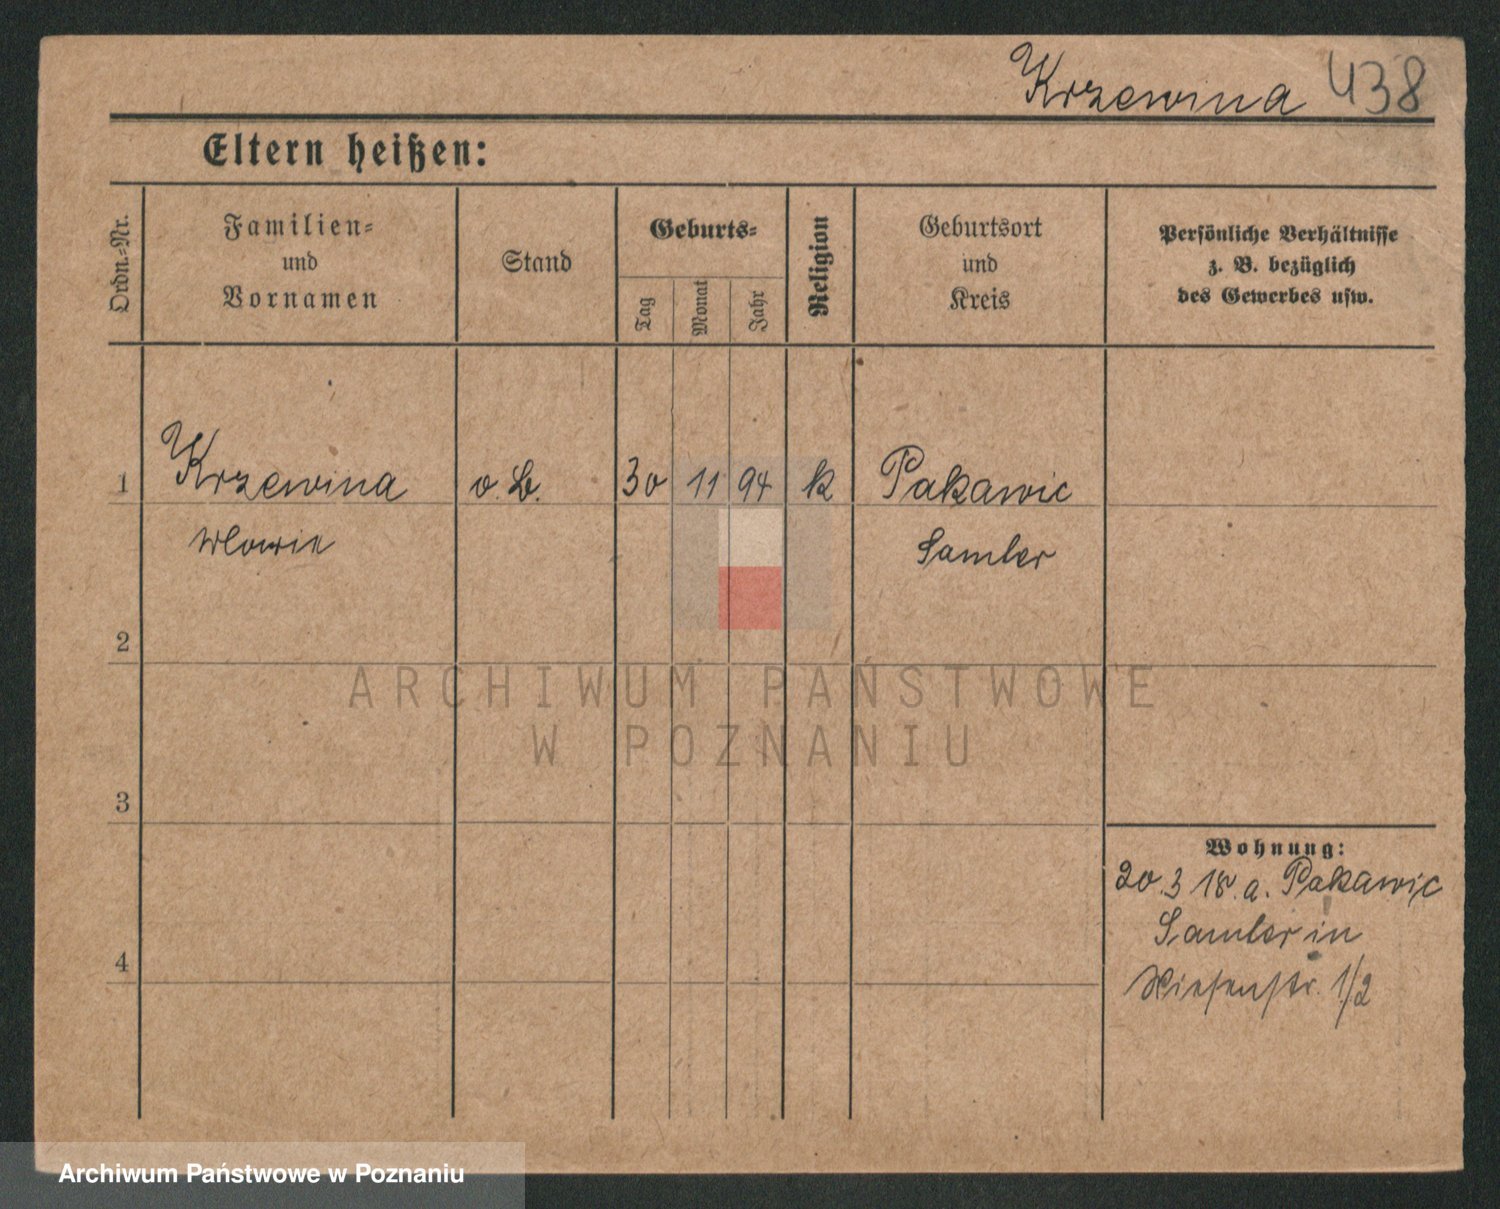 Krzewina 438
Eltern heißen:
Ordn.-Nr.
Familien-
und
Vornamen
Stand
Geburts-
Tag
Monat
Jahr
Religion
Geburtsort
und
Kreis
Persönliche Verhältnisse
z. B. bezüglich
des Gewerbes usw.
1 Krzewina o. B. 30 11 94 k Pakawic
Samter
2
ARCHIWUM PAŃSTWOWE
W POZNANIU
3
Wohnung:
20.3 18. a. Pakawic
4
Samter in
Wiesenstr. 1/2
Archiwum Państwowe w Poznaniu